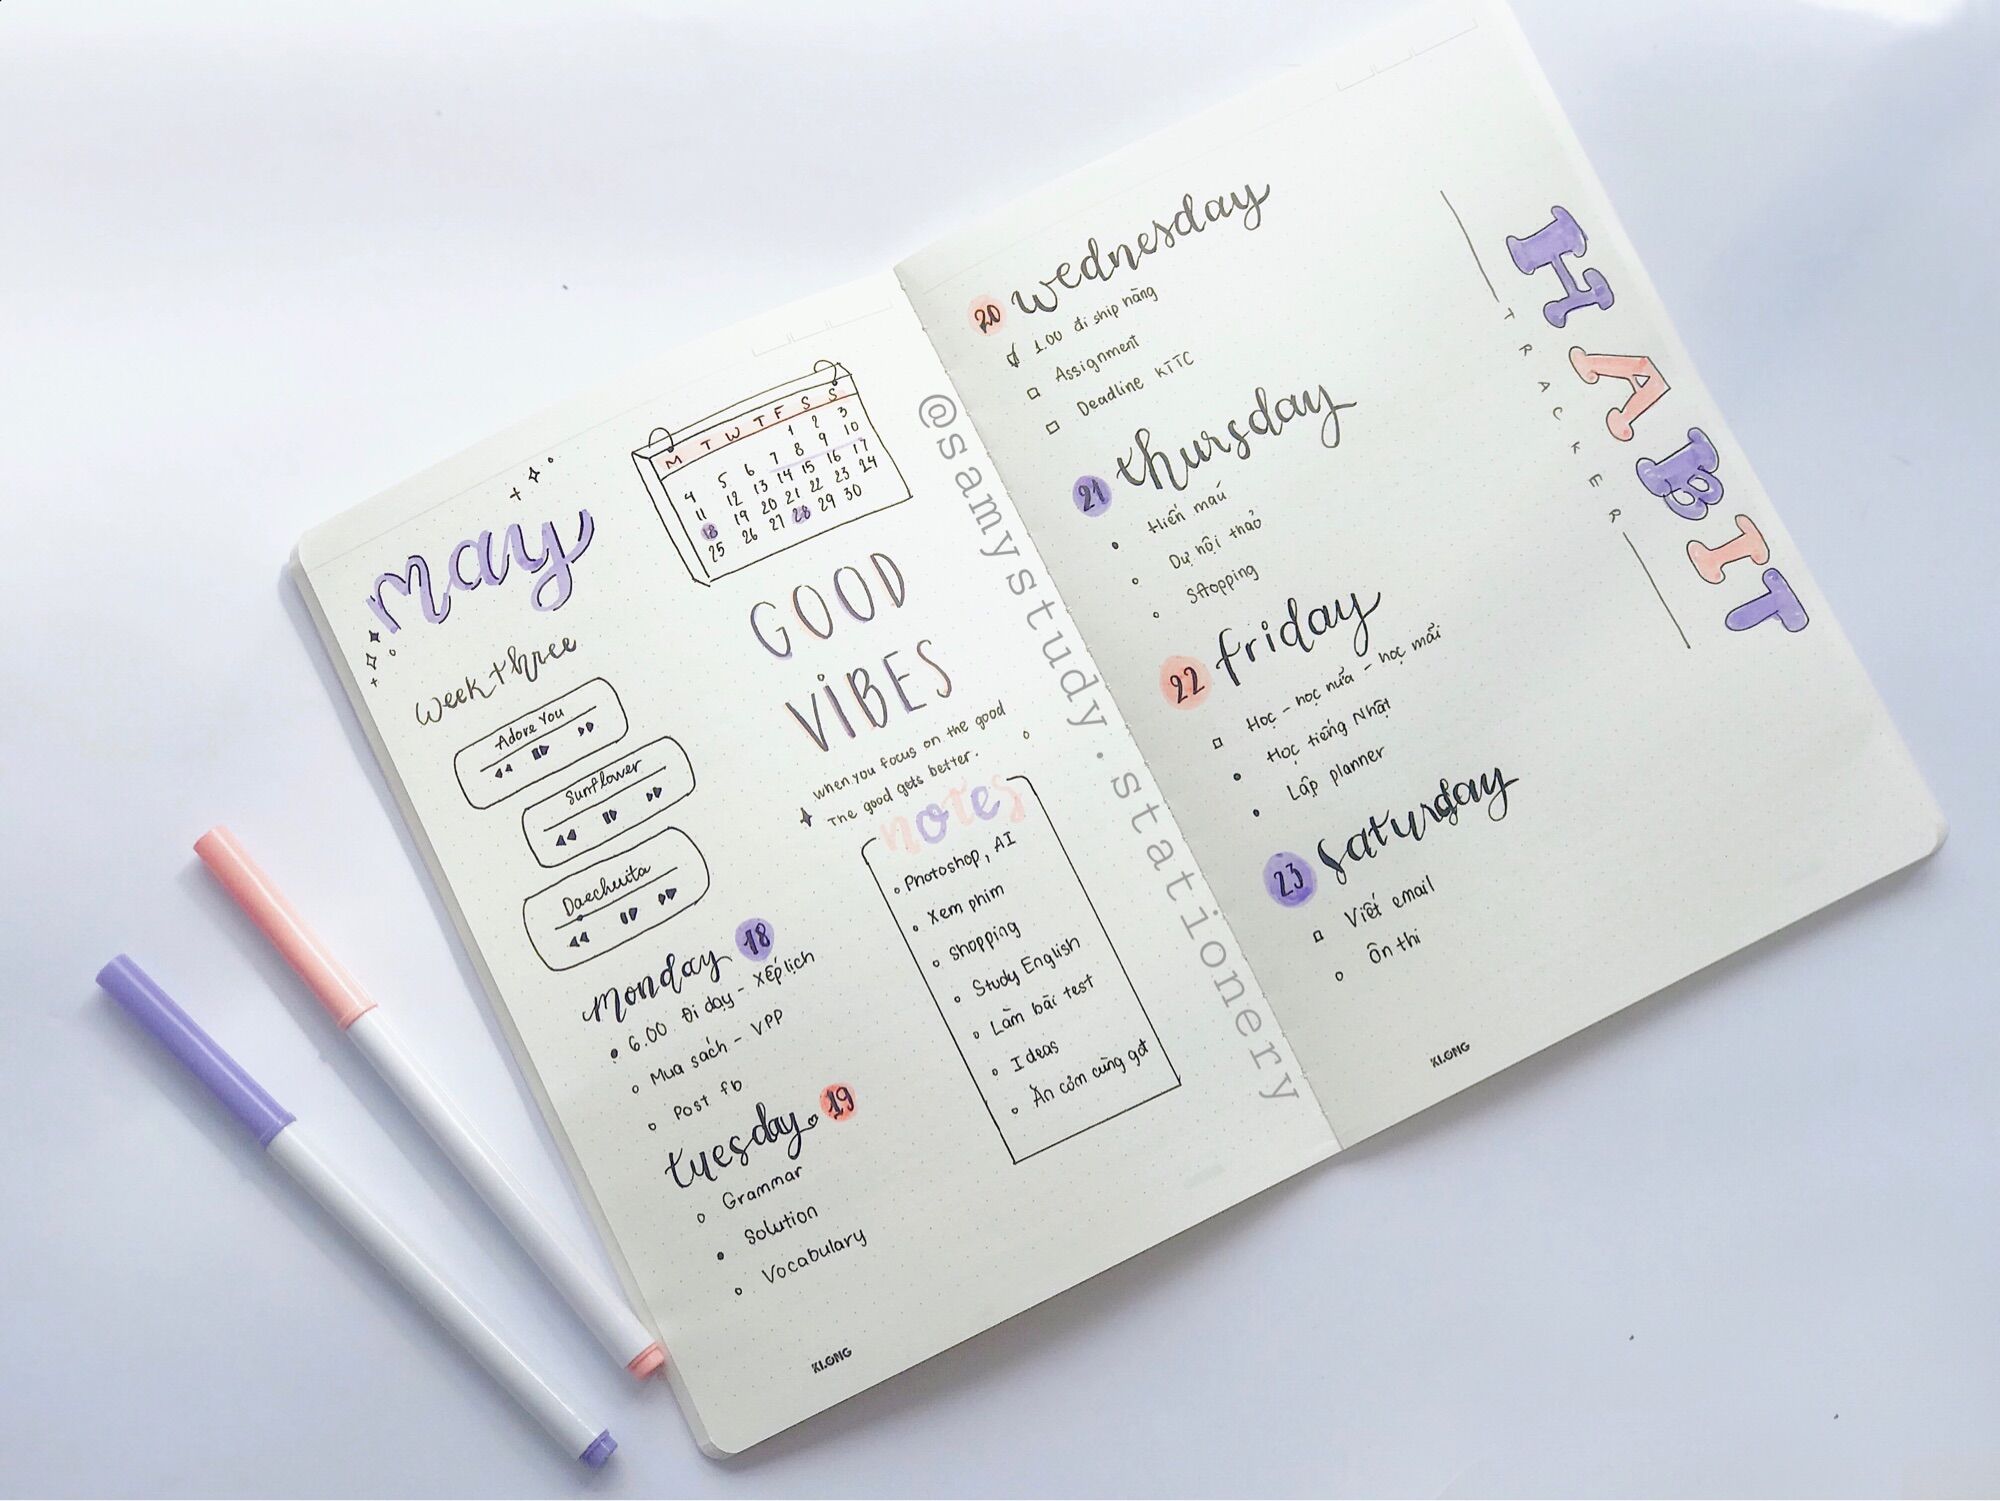 may
week three
Adore You
Sunflower
Daechwita
M T W T F S S
1 2 3
4 5 6 7 8 9 10
11 12 13 14 15 16 17
18 19 20 21 22 23 24
25 26 27 28 29 30
GOOD
VIBES
when you focus on the good
The good gets better.
notes
Photoshop, AI
Xem phim
Shopping
Study English
Làm bài test
Ideas
Ăn cơm cùng gđ
monday 18
6.00 Đi dạy - xếp lịch
Mua sách - VPP
Post fb
tuesday 19
Grammar
Solution
Vocabulary
KLONG
@samystudy.stationery
20 wednesday
1.00 đi ship hàng
Assignment
Deadline KTTC
21 thursday
Hiến máu
Dự hội thảo
Shopping
22 friday
Học - học nữa - học mãi
Học tiếng Nhật
Lập planner
23 saturday
Viết email
Ôn thi
KLONG
HABIT
TRACKER